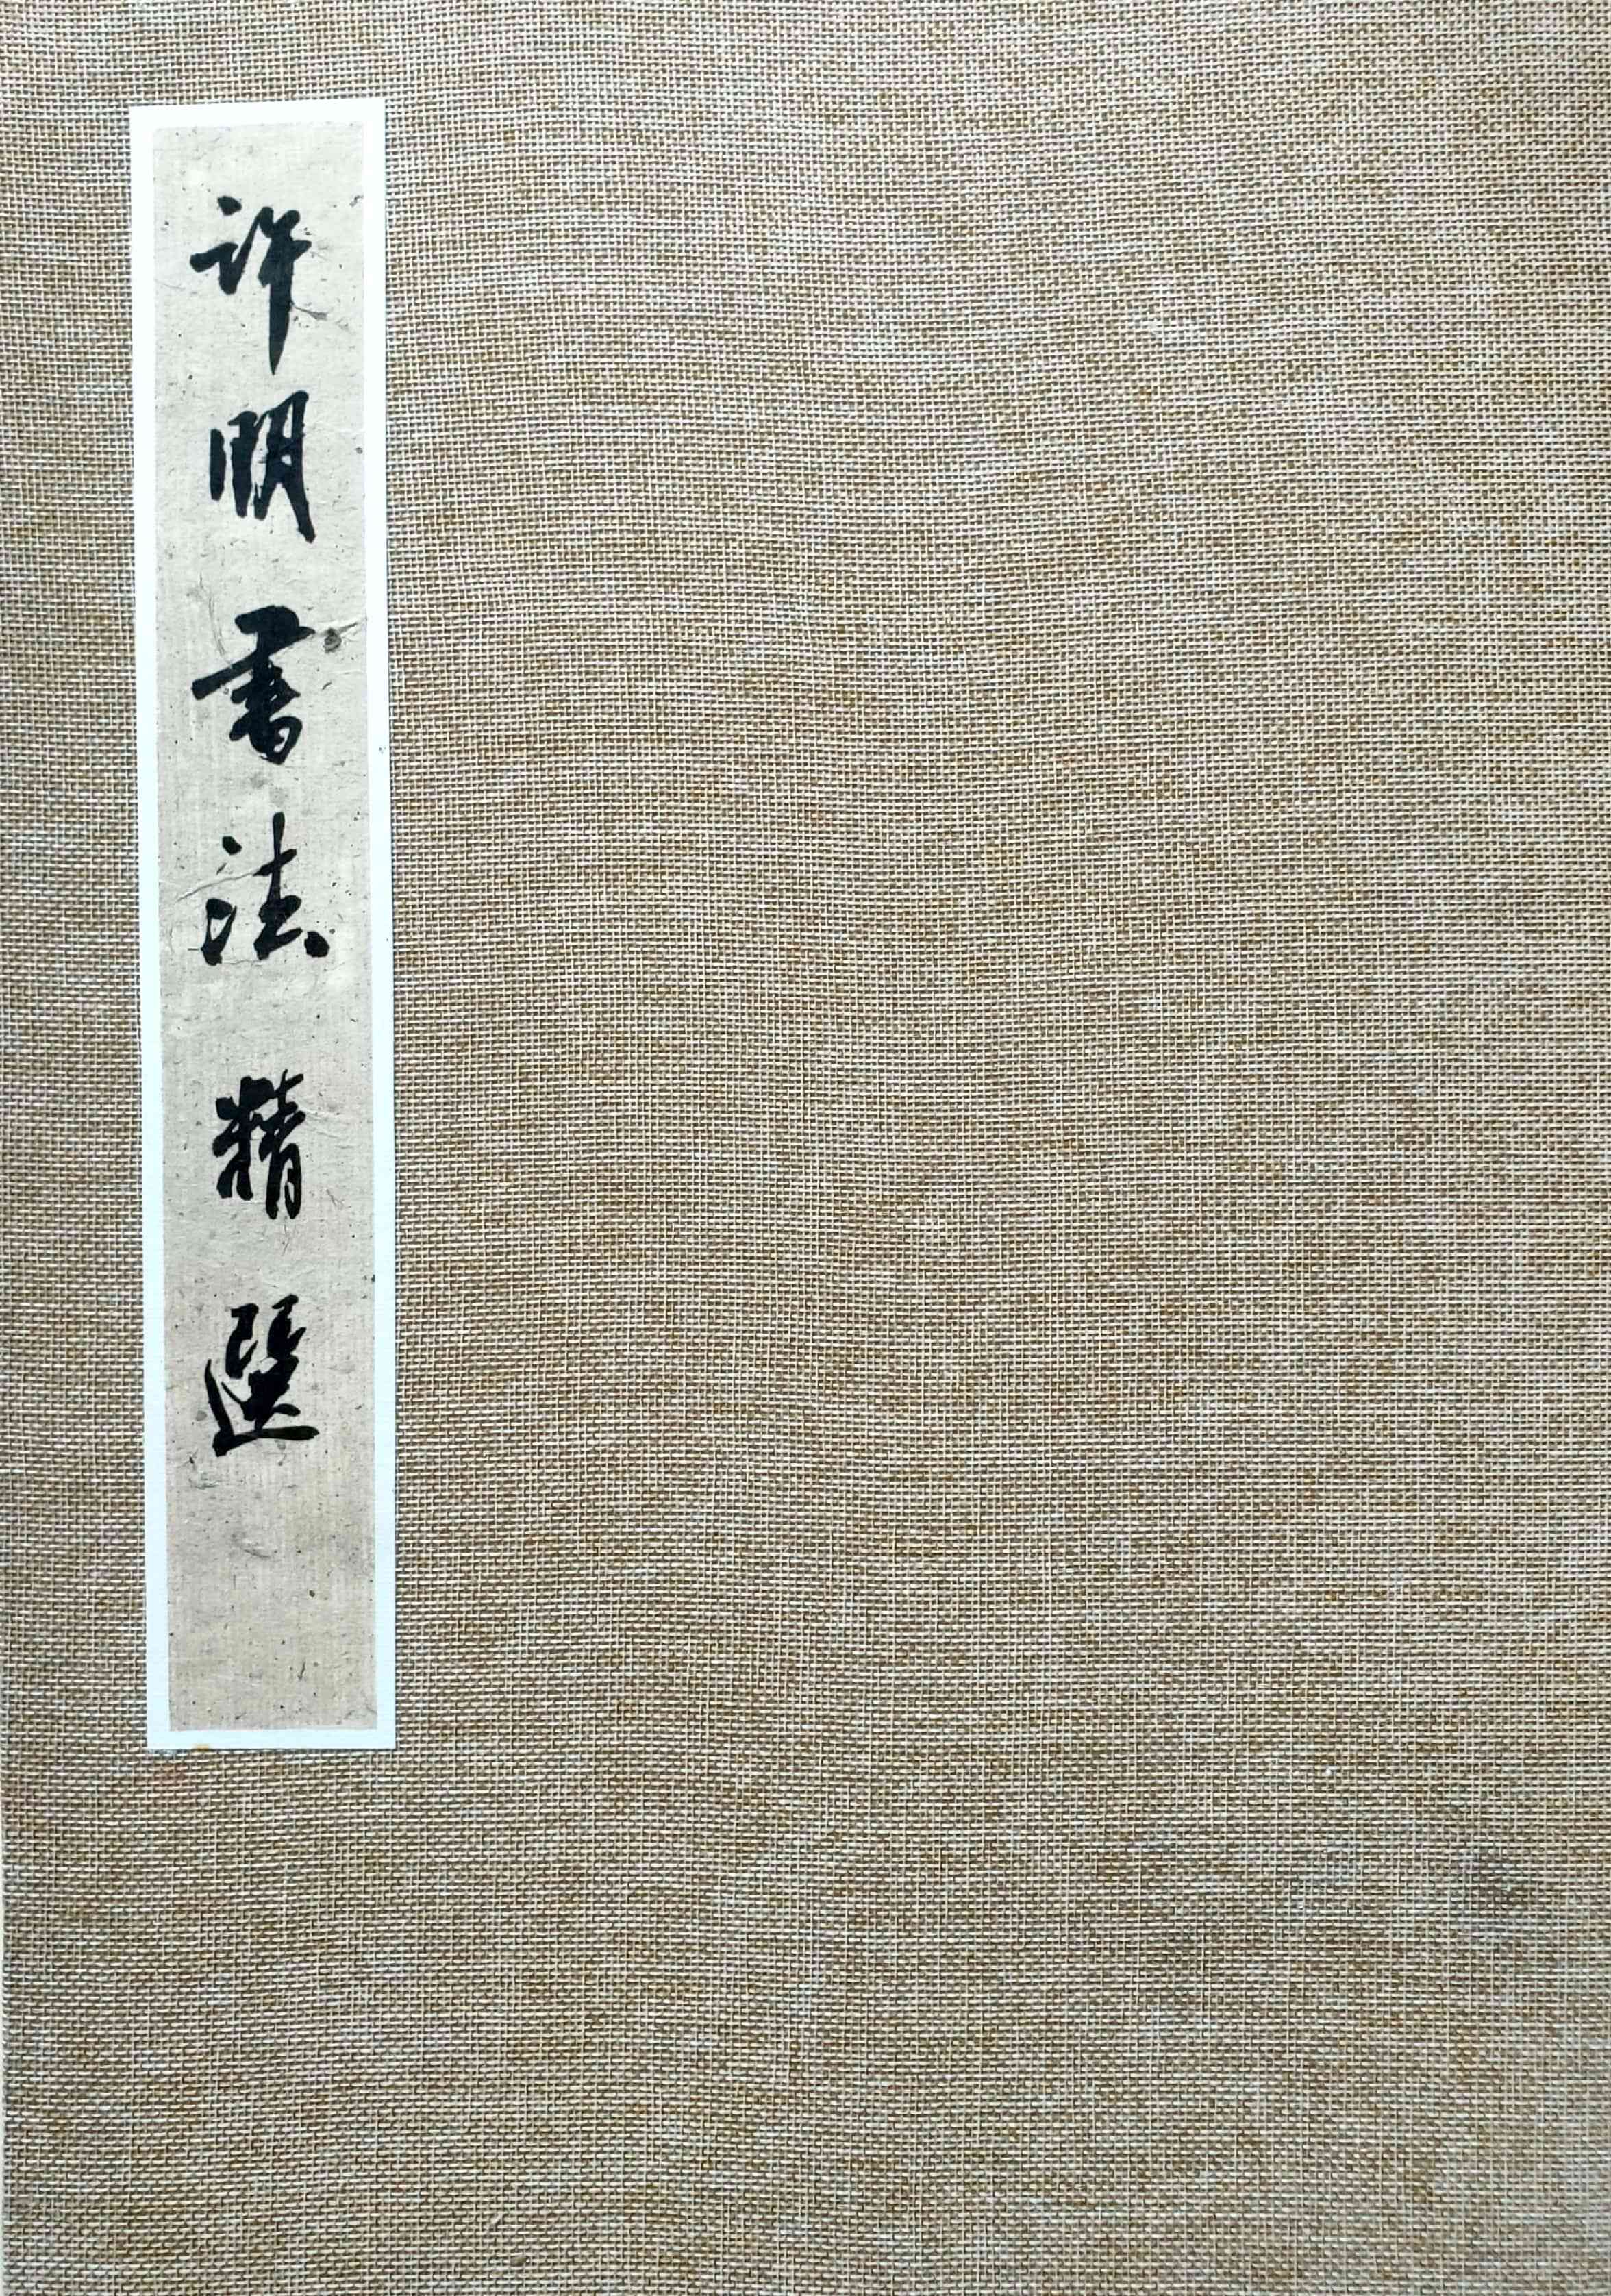 许明書法精選